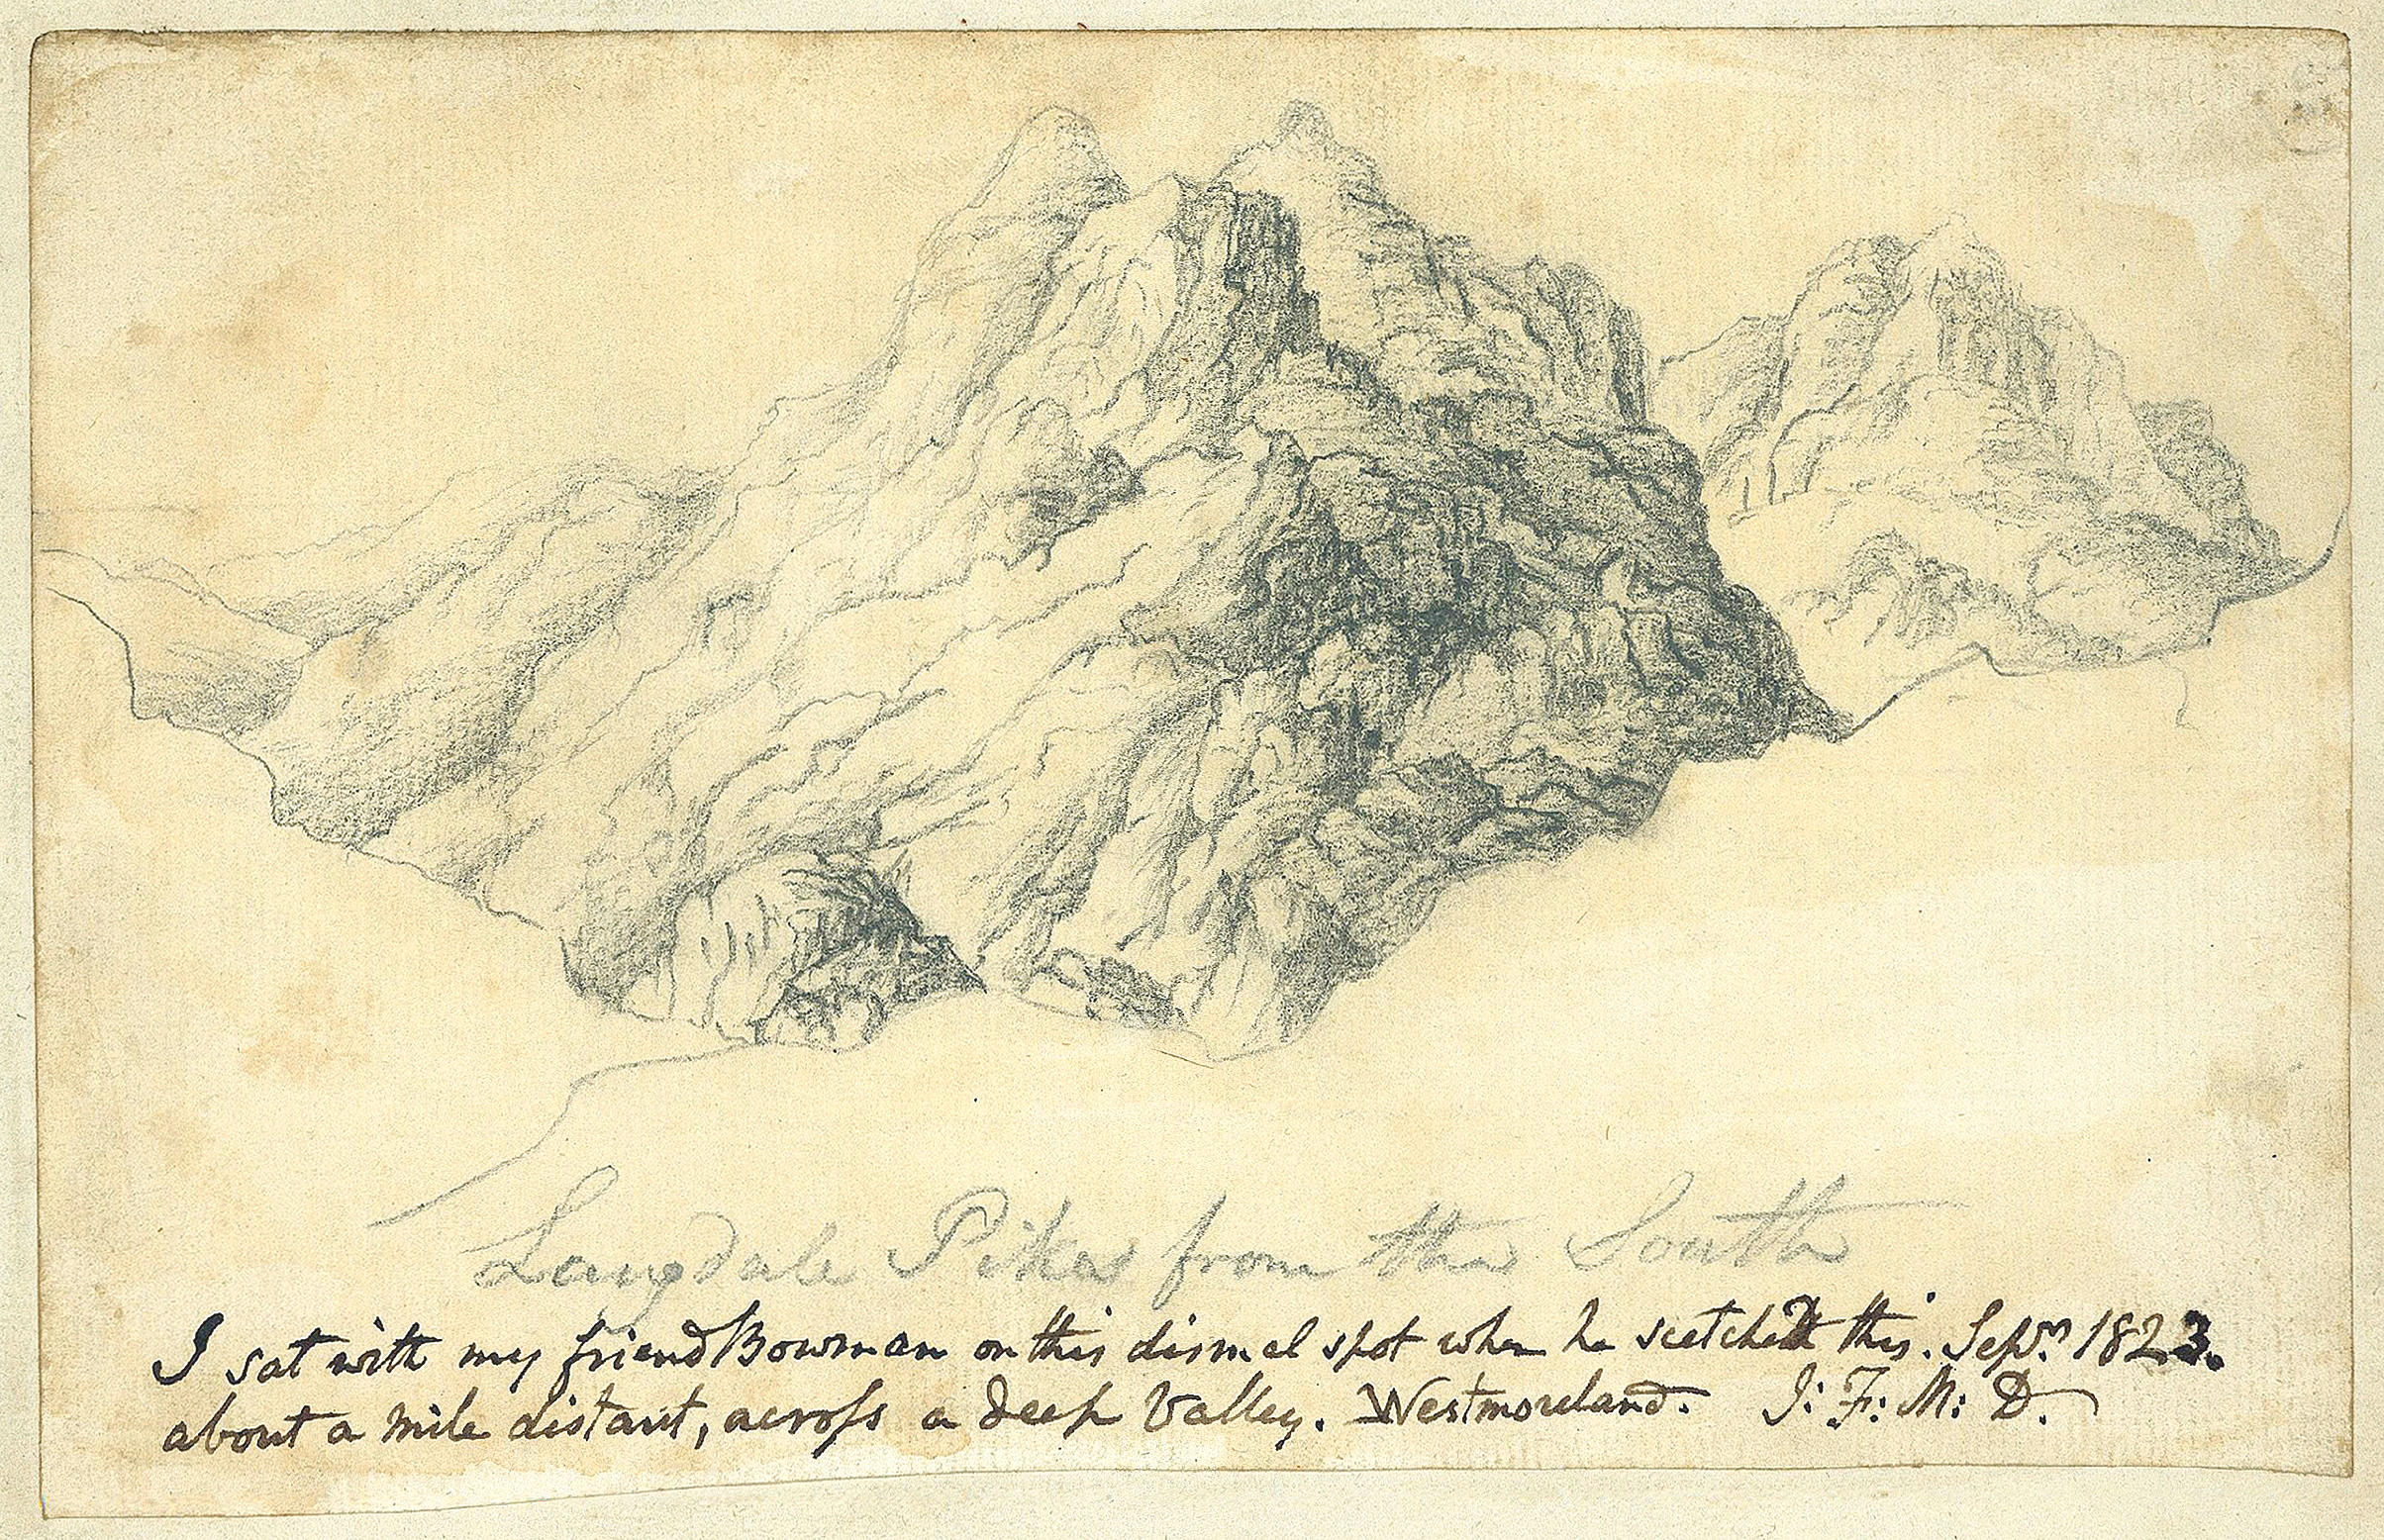 Langdale Pikes from the South
I sat with my friend Bowman on this dismal spot when he scetched this. Sepr. 1823.
about a mile distant, across a deep Valley. Westmoreland. J: F: M: D.